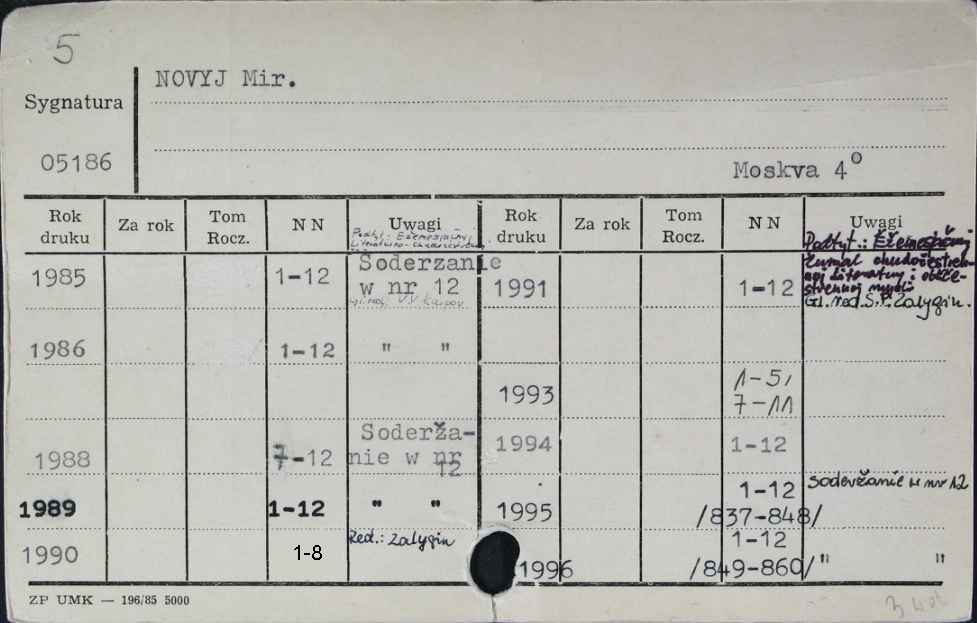 5
NOVYJ Mir.
Sygnatura
05186
Moskva 4°
Rok druku Za rok Tom Rocz. N N Uwagi Rok druku Za rok Tom Rocz. N N Uwagi
Podtyt.: Ežemesjačnyj
literaturno-chudožestvennyj
1985 1-12 Soderzanie
w nr 12
Podtyt.: Ežemesjačnyj
žurnal chudožestven-
noj literatury i obšče-
stvennoj mysli
Gl. red. S.P. Zalygin.
1991 1-12
1986 1-12 " "
1993 1-5,
7-11
1988 7-12 Soderža-
nie w nr
12
1994 1-12
1989 1-12 " "
1995 1-12
/837-848/
soderžanie w nr 12
1990 1-8 Red.: Zalygin
1996 1-12
/849-860/ " "
ZP UMK — 196/85 5000